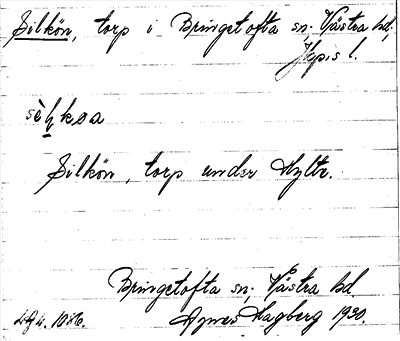 Silkön, torp i Bringetofta sn; Västra hd,
Jkp.s l.
Silkön, torp under Hyltr.
Bringetofta sn; Västra hd.
Agnes Hagberg 1930.